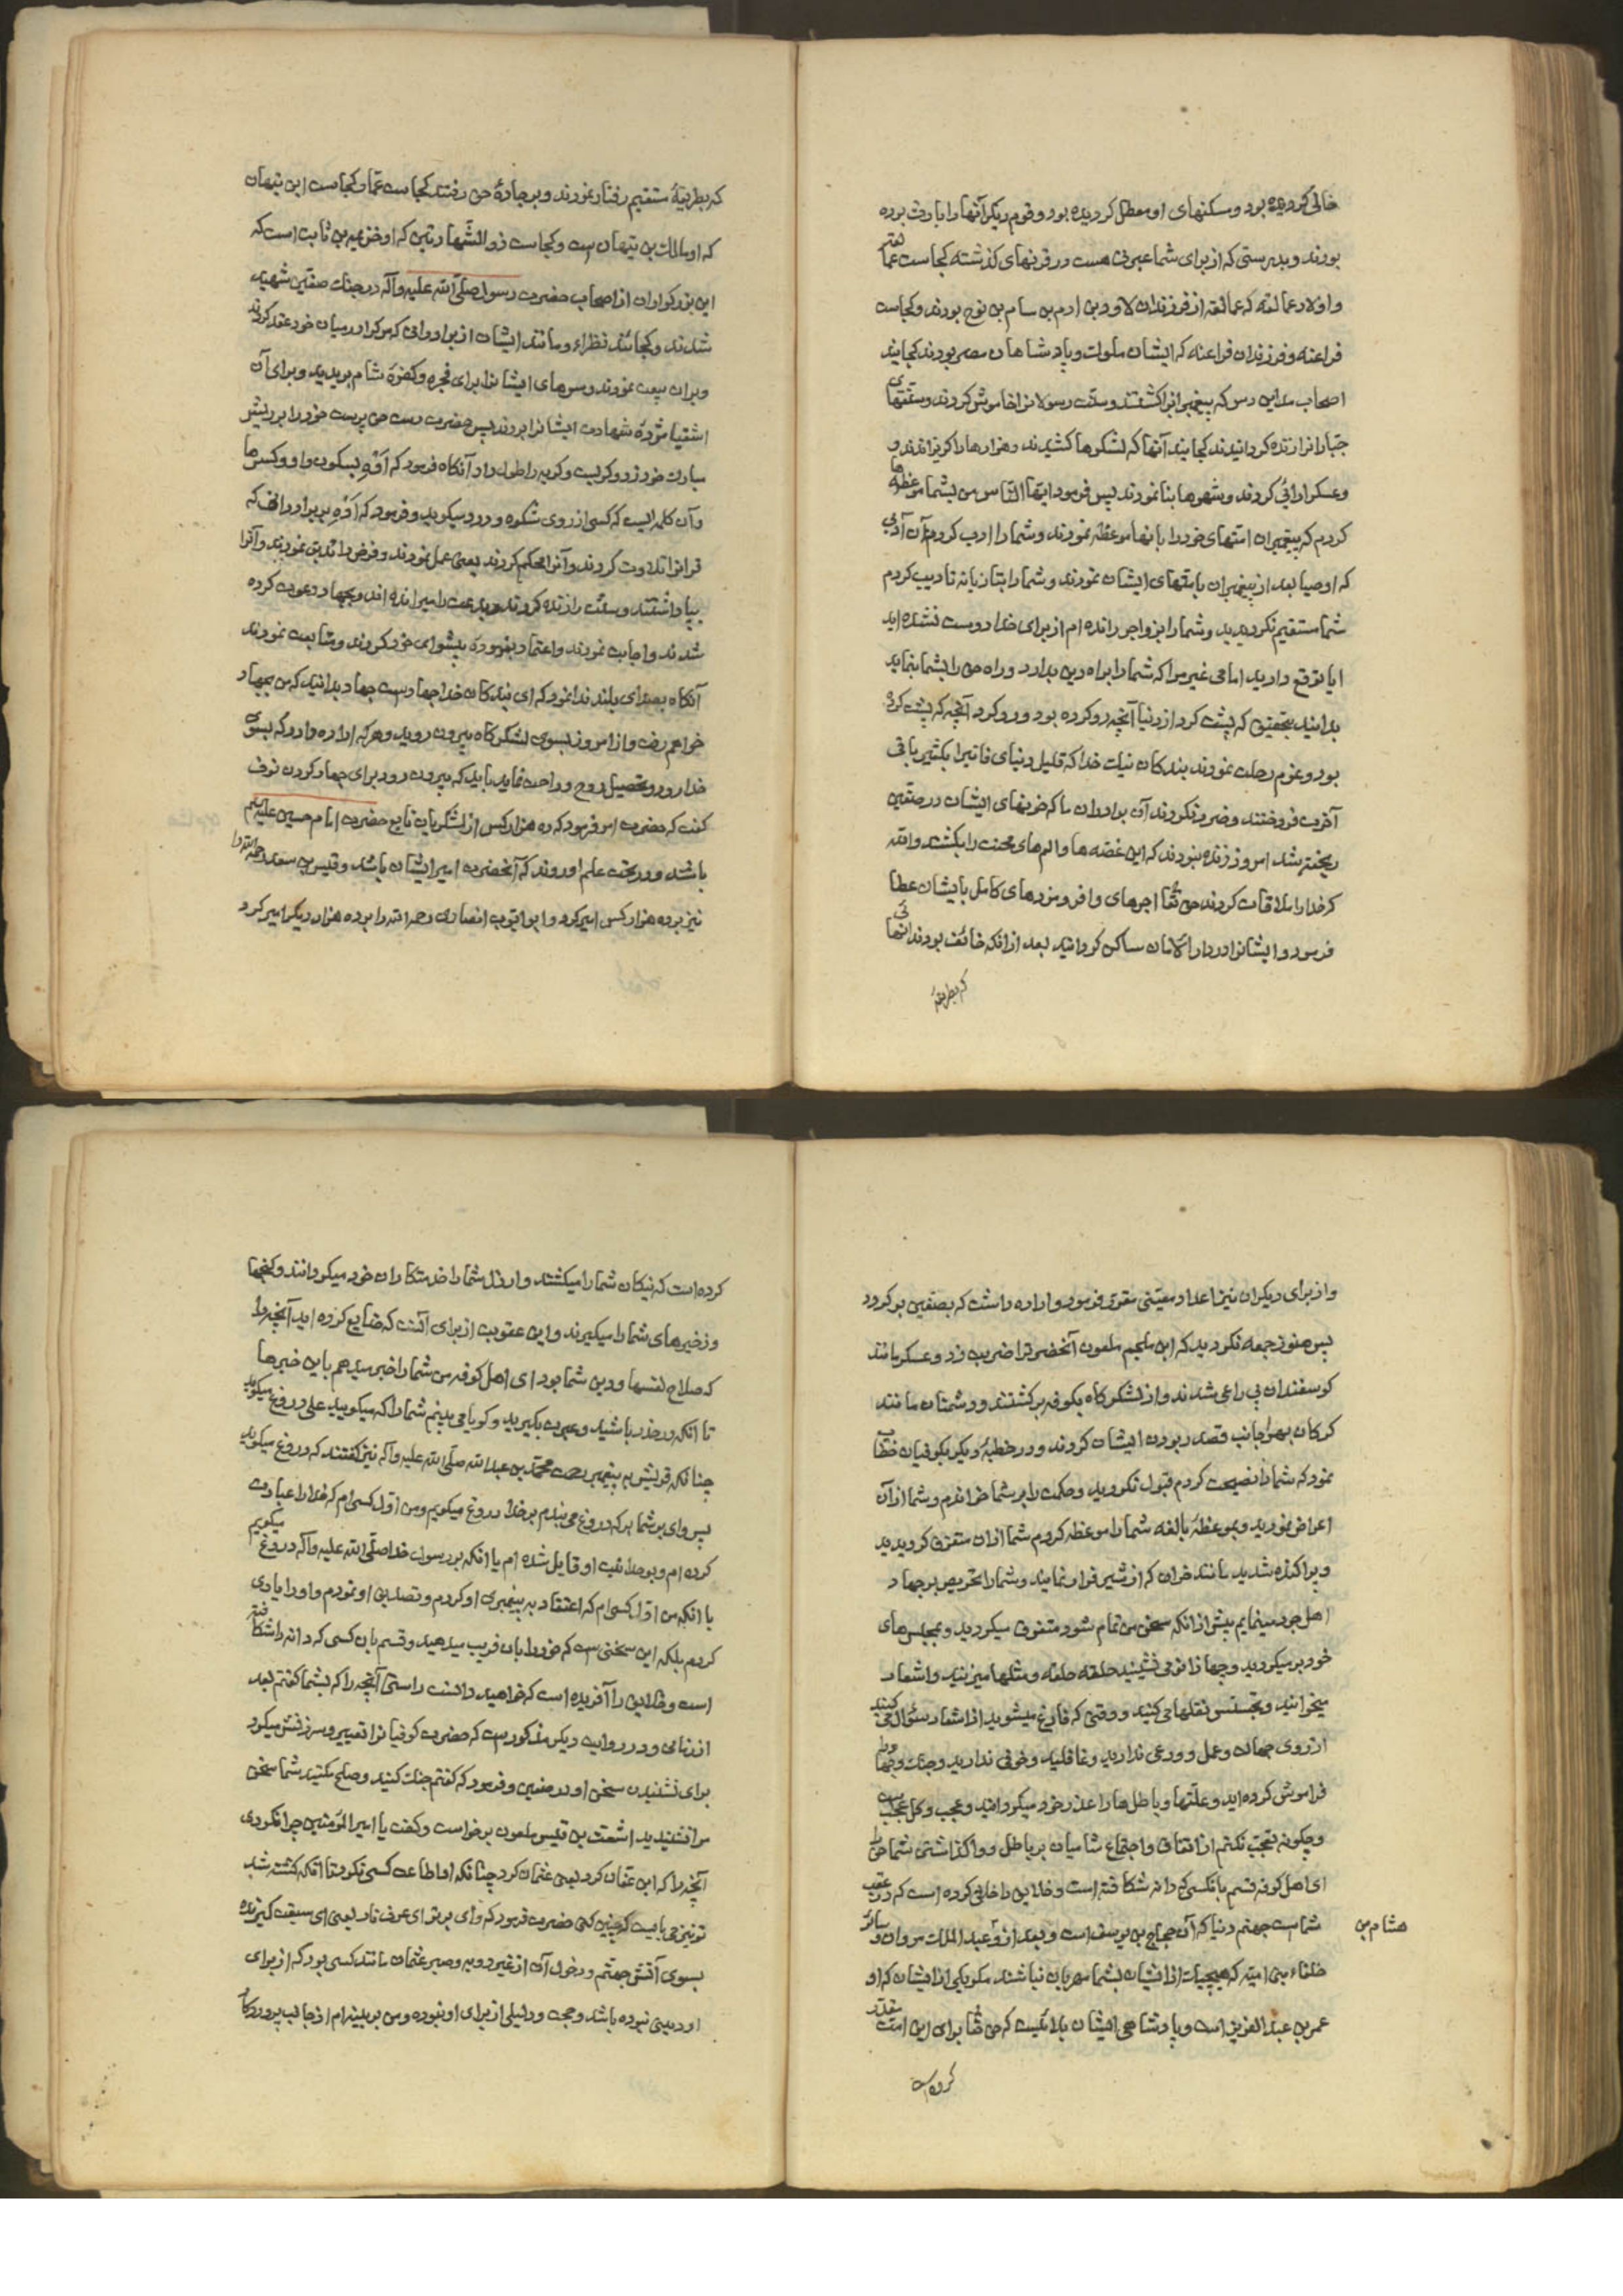 خالی کردیده بود و مسکنهای او معطل کردیده بود و قوم دیکر آنها را بارث برده
بودند و بدرستی که از برای شما عبرتی هست در قرنهای کذشته کجاست عمالقه
و اولاد عمالقه که عمالقه از فرزندان لاود بن ارم بن سام بن نوح بودند و کجاست
فراعنه و فرزندان فراعنه که ایشان ملوک و پادشاهان مصر بودند کجایند
اصحاب مداین رس که پیغمبرانرا کشتند و سنت رسولانرا خاموش کردند و سنتهای
جبارانرا زنده کردانیدند کجایند آنها که لشکرها کشیدند و هزارها را کریزاندند و
و عسکر ارائی کردند و شهرها بنا نمودند پس فرمود ایها الناس من بشما موعظه ها
کردم که پیغمبران امتهای خود را بانها موعظه نمودند و شما را ادب کردم آن آدابی
که اوصیا بعد از پیغمبران بامتهای ایشان نمودند و شما را بتازیانه تادیب کردم
شما مستقیم نکردیدید و شما را بزواجر رانده ام از برای خدا دوست نشده اید
ایا توقع دارید امامی غیر مرا که شما را براه دین بدارد و راه حق را بشما بنماید
بدانید بتحقیق که پشت کرد از دنیا آنچه رو کرده بود و رو کرد آنچه که پشت کرده
بود و عزم رحلت نمودند بندکان نیک خدا که قلیل دنیای فانیرا بکثیر باقی
آخرت فروختند و ضرر نکردند آن برادران ما که خونهای ایشان در صفین
ریخته شد امروز زنده نبودند که این غصه ها و الم های محنت را بکشند والله
که خدا را ملاقات کردند حق تعا اجرهای وافر و مزدهای کامل بایشان عطا
فرمود و ایشانرا در دار الامان ساکن کردانید بعد از انکه خائف بودند انهائی
که بطریقهٔ
که بطریقهٔ مستقیم رفتار نمودند و بر جادهٔ حق رفتند کجاست عمار و کجاست ابن تیهان
که او مالک بن تیهان است و کجاست ذو الشهادتین که او خزیمه بن ثابت است که
این بزرکواران از اصحاب حضرت رسول صلی الله علیه و آله در جنک صفین شهید
شدند و کجائند نظراء و مانند ایشان از برادرانی که مرک را در میان خود عقد کردند
و بران بیعت نمودند و سرهای ایشانرا برای فجره و کفرهٔ شام بریدید و برای آن
اشقیا مژدهٔ شهادت ایشانرا بردند پس حضرت دست حق پرست خود را بر ریش
مبارک خود زد و کریست و کریه را طول داد آنکاه فرمود که اَوْهِ بسکون واو و کسر ها
و آن کلمه ایست که کسی از روی شکوه و درد میکوید و فرمود که اَوْهِ بر برادرانی که
قرانرا تلاوت کردند و آنرا محکم کردند یعنی عمل نمودند و فرض را تدبّر نمودند و آنرا
بپا داشتند و سنت را زنده کردند و بدعت را میرانده اند و بجهاد دعوت کرده
شدند و اجابت نمودند و اعتماد بفرمودهٔ پیشوای خود کردند و متابعت نمودند
آنکاه بصدای بلند ندا نمود که ای بندکان خدا جهاد است جهاد بدانید که من بجهاد
خواهم رفت و از امروز بسوی لشکرکاه بیرون روید و هر که اراده دارد که بسوی
خدا رود و تحصیل روح و راحت نماید باید که بیرون رود برای جهاد کردن نوف
کفت که حضرت امر فرمود که ده هزار کس از لشکریان تابع حضرت امام حسین علیه السلم
باشند و در تحت علم او روند که آنحضرت امیر ایشان باشد و قیس بن سعد رحمه الله را
نیز بر ده هزار کس امیر کرد و ابو ایّوب انصاری رحمه الله را بر ده هزار دیکر امیر کرد
و از برای دیکران نیز اعداد معیّنی مقرّر فرمود و اراده داشت که بصفین برکردد
پس هنوز جمعه نکردید که ابن ملجم ملعون آنحضرترا ضربت زد و عسکر مانند
کوسفندان بی راعی شدند و از لشکرکاه بکوفه برکشتند و دشمنان مانند
کرکان بهر جانب قصد ربودن ایشان کردند و در خطبهٔ دیکر بکوفیان خطاب
نمود که شما را نصیحت کردم قبول نکردید و حکمت را بر شما خواندم و شما از آن
اعراض نمودید و بموعظهٔ بالغه شما را موعظه کردم شما ازان متفرق کردیدید
و پراکنده شدید مانند خران که از شیر فرار نمایند و شما را تحریص بر جهاد
اهل جور مینمایم پیش از انکه سخن من تمام شود متفرق میکردید و بمجلس های
خود بر میکردید و چهار زانو می نشینید حلقه حلقه و مثلها میزنید و اشعار
میخوانید و تجسّس نقلها می کنید و وقتی که فارغ میشوید از اشعار سئوال می کنید
از روی جهالت و عمل و ورعی ندارید و غافلید و خوفی ندارید و جنک و جهاد را
فراموش کرده اید و علّتها و باطل ها را عذر خود میکردانید و عجب و کل عجب است
و چکونه تعجّب نکنم از اتفاق و اجتماع شامیان بر باطل و واکذاشتن شما حق را
ای اهل کوفه قسم بانکسی که دانه شکافته است و خلایق را خلق کرده است که در عقب
شماست جهنم دنیا که آن حجاج بن یوسف است و بعد از و عبد الملک مروان و سائر
هشام بن
خلفاء بنی امیّه که هیچیک از ایشان بشما مهربان نباشند مکر یکی از ایشان که او
عمر بن عبد العزیز است و پادشاهی ایشان بلائیست که حق تعا برای این امت مقدّر
کرده است
کرده است که نیکان شما را میکشند و ارذل شما را خدمتکاران خود میکردانند و کنجها
و ذخیرهای شما را میکیرند و این عقوبت از برای آنست که ضایع کرده اید آنچه را
که صلاح نفسها و دین شما بود ای اهل کوفه من شما را خبر میدهم باین خبرها
تا انکه در حذر باشید و عبرت بکیرید و کویا می بینم شما را که میکویید علی دروغ میکوید
چنانکه قریش به پیغمبر رحمت محمّد بن عبد الله صلی الله علیه و آله نیز کفتند که دروغ میکوید
پس وای بر شما بر که دروغ می بندم بر خدا دروغ میکویم و من اوّل کسی ام که خدا را عبادت
کرده ام و بوحدانیت او قایل شده ام یا انکه بر رسول خدا صلی الله علیه و آله دروغ میکویم
با انکه من اوّل کسی ام که اعتقاد به پیغمبری او کردم و تصدیق او نمودم و او را یاری
کردم بلکه این سخنی ست که خود را بان فریب میدهید و قسم بان کسی که دانه را شکافته
است و خلایق را آفریده است که خواهید دانست راستی آنچه را که بشما کفتم بعد
از زمانی و در روایت دیکر مذکور است که حضرت کوفیانرا تعییر و سرزنش میکرد
برای نشنیدن سخن او در صفین و فرمود که کفتم جنک کنید و صلح مکنید شما سخن
مرا نشنیدید اشعث بن قیس ملعون برخواست و کفت یا امیر المؤمنین چرا نکردی
آنچه را که ابن عفّان کرد یعنی عثمان کرد چنانکه او اطاعت کسی نکرد تا انکه کشته شد
تو نیز می بایست که چنین کنی حضرت فرمود که وای بر تو ای عرف نار یعنی ای سبقت کیرنده
بسوی آتش جهنّم و دخول آن از غیر رویه و صبر عثمان مانند کسی بود که از برای
او دینی نبوده باشد و حجت و دلیلی از برای او نبوده و من بر بینه ام از جانب پروردکار